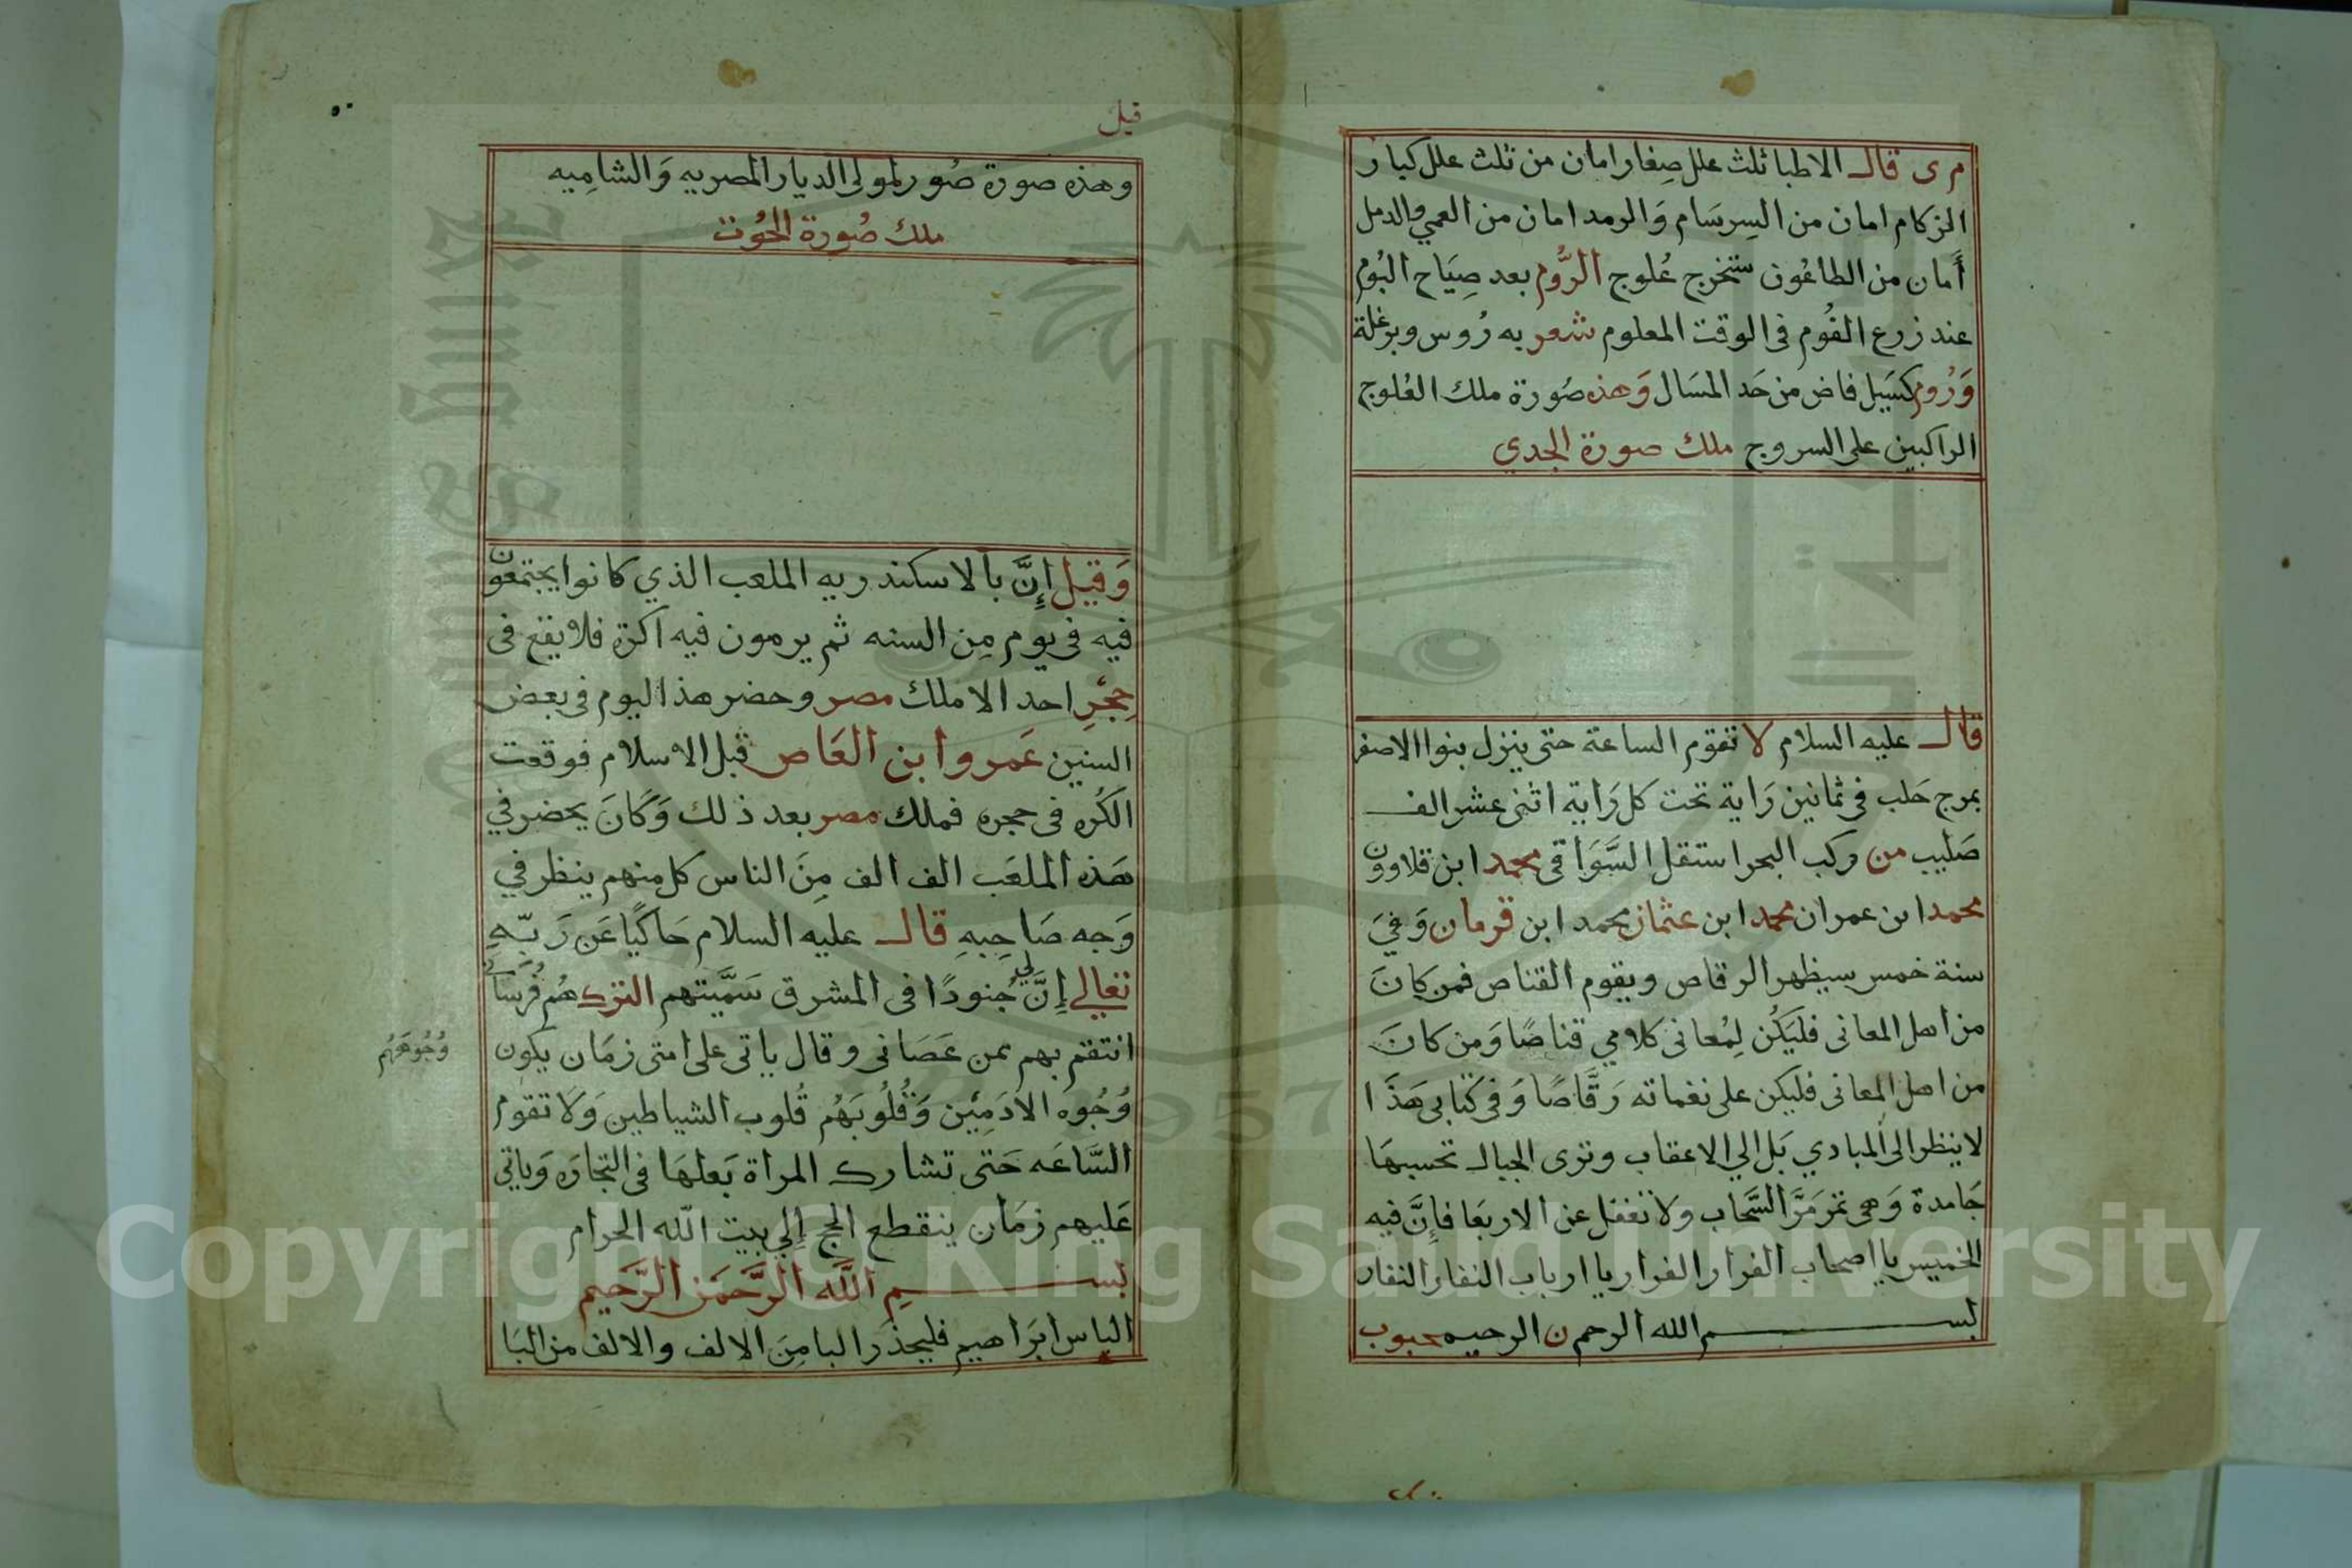 م ى قال الاطبا ثلث علل صِغار امان من ثلث علل كبار
الزكام امان من السِرسَام وَالرمد امان من العمي والدمل
أَمان من الطاعُون ستخرج عُلوج الرُّوم بعد صِيَاح البُوم
عند زرع الفُوم فى الوقت المعلوم شعر به رُوس وبرغلة
وَرُوم كسَيل فاض من حَد المسَال وَهذه صُورة ملك العُلوج
الراكبين على السروج ملك صورة الجدي
قال عليه السلام لا تقوم الساعة حتى ينزل بنوا الاصفر
بمرج حَلب فى ثمانين رَاية تحت كل رَاية اثنى عشر الف
صَليب من ركب البحر استقل السَّوَاقى محمد ابن قلاوون
محمد ابن عمران محمد ابن عثمان محمد ابن قرمان وَفيَ
سنة خمس سيظهر الرقاص ويقوم القناص فمن كانَ
من اهل المعانى فليَكُن لِمُعانى كلامي قناصًا وَمن كانَ
من اهل المعانى فليكن على نغماته رَقَّاصًا وَفى كتابى هَذَا
لا ينظر الى المبادي بَل الي الاعقاب وترى الجبال تحسبهَا
جَامدة وَهى تمر مَرَّ السَّحَاب وَلا تغفل عن الاربعَا فإنَّ فيه
الخميس يا اصحاب الفرار الفرار يا ارباب النفار النفار
بسم الله الرحمن الرحيم محبوب
قيل
٥٠
وهذه صورة صُور لمولى الديار المصريه وَالشامِيه
ملك صُورة الحُوت
وَقيل إِنَّ بالاسكندريه الملعب الذي كانوا يجتمعون
فيه فى يوم مِن السنه ثم يرمون فيه اكرة فلا يقع فى
حِجْرِ احد الا ملك مصر وحضر هذا اليوم فى بعض
السنين عَمروا بن العَاص قبل الاسلام فوقعت
الكُره فى حجره فملك مصر بعد ذلك وَكَانَ يحضر في
هَذه الملعَب الف الف مِنَ الناس كل منهم ينظر في
وَجه صَاحِبهِ قال عليه السلام حَاكيًا عَن رَبّهِ
تعالي إِنَّ لي جُنودًا فى المشرق سَمَّيتهم الترك هُم فُرسَانى
انتقم بهم ممن عَصَانى وقال ياتى على امتى زمَان يكون
وُجُوههُم
وُجُوه الادَمِيّين وَقُلُوبَهُم قُلوب الشياطين وَلا تقوم
السَّاعَه حَتى تشارك المراة بَعلهَا فى التجارَه وَياتى
عَليهم زمَان ينقطع الحج إلي بيت الله الحرام
بسمِ اللَّه الرَّحمَن الرَّحيم
الياس ابرَاهيم فليحذر البا مِنَ الالف والالف من البَا
Copyright © King Saud University
1957